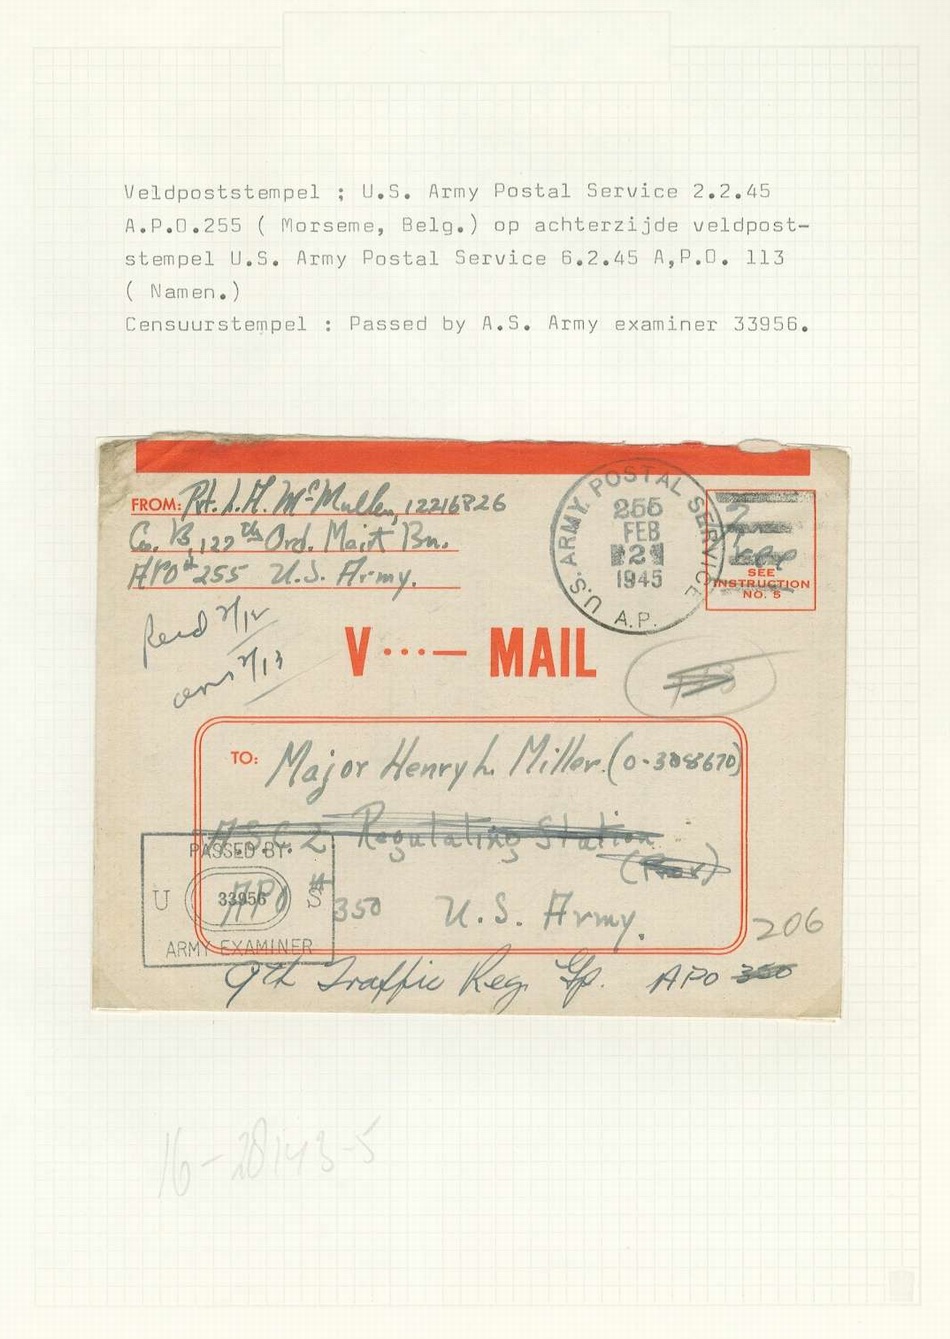 Veldpoststempel ; U.S. Army Postal Service 2.2.45
A.P.O.255 ( Morseme, Belg.) op achterzijde veldpost-
stempel U.S. Army Postal Service 6.2.45 A,P.O. 113
( Namen.)
Censuurstempel : Passed by A.S. Army examiner 33956.
FROM: Pvt. L.A. McMullen, 12216826
Co. B, 127th Ord. Maint Bn.
APO # 255 U.S. Army.
U.S. ARMY POSTAL SERVICE
255
FEB
2
1945
A.P.
SEE
INSTRUCTION
NO. 5
2/12
2/13
V ...— MAIL
TO: Major Henry L. Miller. (0-308670)
A.S.C.Z Regulating Station
APO # 350 U.S. Army.
PASSED BY
U 33956 S
ARMY EXAMINER
206
9th Traffic Reg. Gp. APO 350
16-28143-5